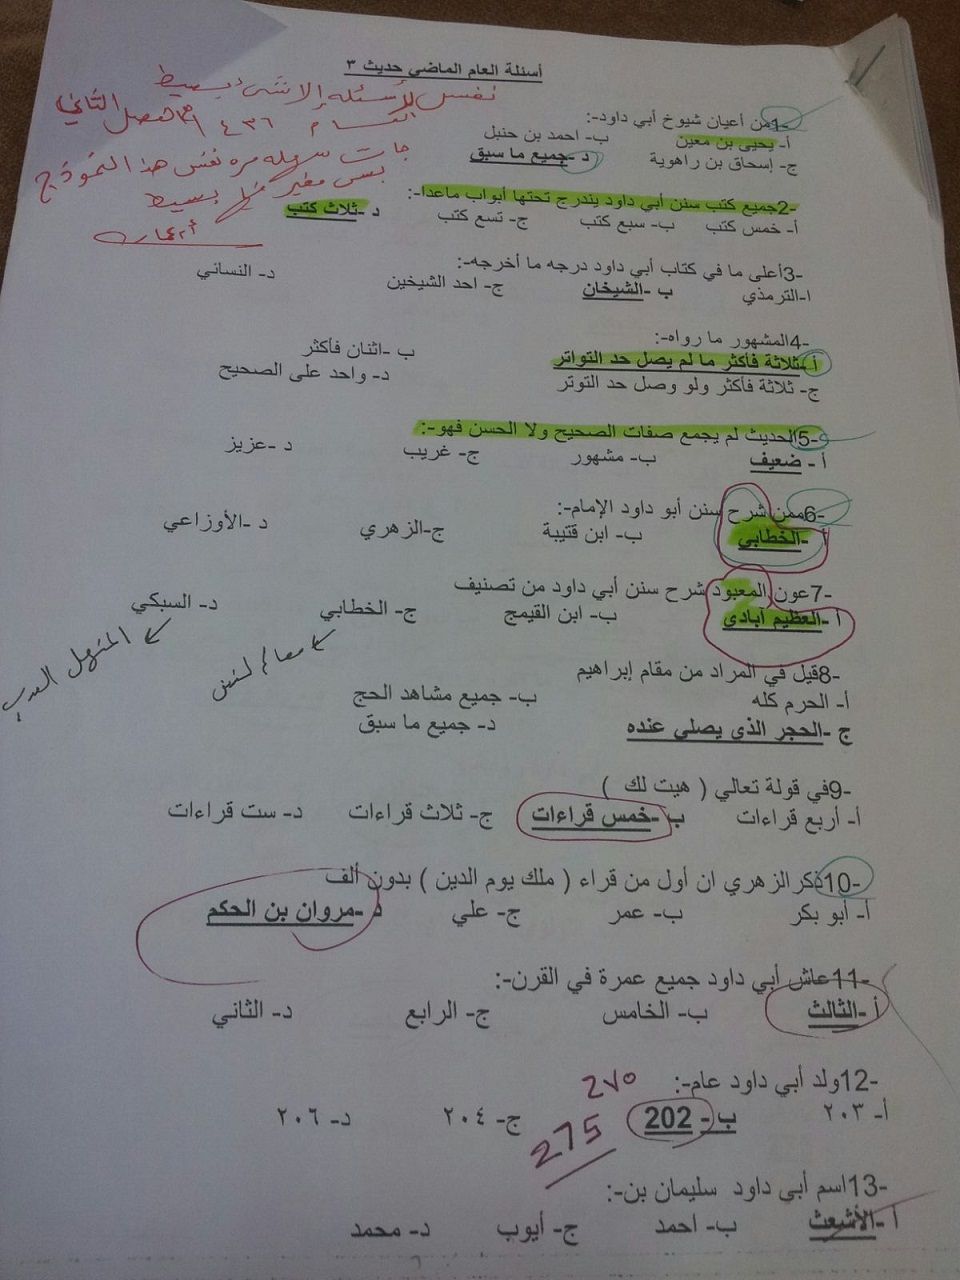 أسئلة العام الماضي حديث ٣
نفس الأسئله إلا شيء بسيط
١٤٣٦ الفصل الثاني
جات سهله مره نفس هذا النموذج
بس مغير فيها بسيط
-1من أعيان شيوخ أبي داود:-
أ- يحيى بن معين ب- احمد بن حنبل
ج- إسحاق بن راهوية د -جميع ما سبق
-2جميع كتب سنن أبي داود يندرج تحتها أبواب ماعدا:-
أ- خمس كتب ب- سبع كتب ج- تسع كتب د -ثلاث كتب
-3أعلى ما في كتاب أبي داود درجه ما أخرجه:-
ا-الترمذي ب -الشيخان ج- احد الشيخين د- النسائي
-4المشهور ما رواه:-
أ -ثلاثة فأكثر ما لم يصل حد التواتر ب -اثنان فأكثر
ج- ثلاثة فأكثر ولو وصل حد التوتر د- واحد على الصحيح
-5الحديث لم يجمع صفات الصحيح ولا الحسن فهو:-
أ - ضعيف ب- مشهور ج- غريب د -عزيز
-6ممن شرح سنن أبو داود الإمام:-
أ -الخطابي ب- ابن قتيبة ج-الزهري د -الأوزاعي
-7عون المعبود شرح سنن أبي داود من تصنيف
أ -العظيم أبادي ب- ابن القيمج ج- الخطابي د- السبكي
معالم السنن
المنهل العذب
-8قيل في المراد من مقام إبراهيم
أ- الحرم كله ب- جميع مشاهد الحج
ج -الحجر الذي يصلي عنده د- جميع ما سبق
-9في قولة تعالي ( هيت لك )
أ- أربع قراءات ب -خمس قراءات ج- ثلاث قراءات د- ست قراءات
-10ذكر الزهري ان أول من قراء ( ملك يوم الدين ) بدون ألف
أ- أبو بكر ب- عمر ج- علي د -مروان بن الحكم
-11عاش أبي داود جميع عمرة في القرن:-
أ -الثالث ب- الخامس ج- الرابع د- الثاني
-12ولد أبي داود عام:-
٢٧٥
أ- ٢٠٣ ب - 202 ج- ٢٠٤ د- ٢٠٦
275
-13اسم أبي داود سليمان بن:-
أ -الأشعث ب- احمد ج- أيوب د- محمد